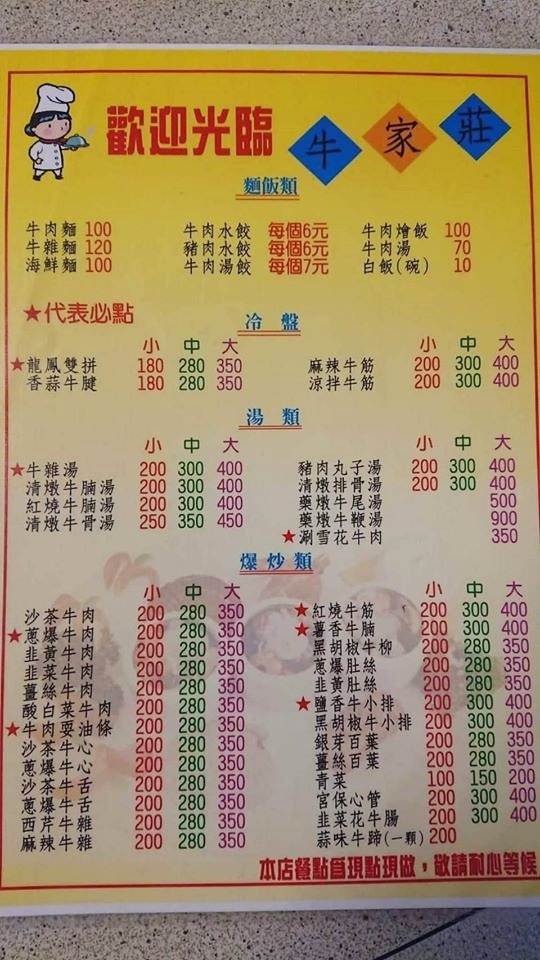 歡迎光臨 牛家莊
麵飯類
牛肉麵 100 牛肉水餃 每個6元 牛肉燴飯 100
牛雜麵 120 豬肉水餃 每個6元 牛肉湯 70
海鮮麵 100 牛肉湯餃 每個7元 白飯(碗) 10
★代表必點
冷盤
小 中 大 小 中 大
★龍鳳雙拼 180 280 350 麻辣牛筋 200 300 400
香蒜牛腱 180 280 350 涼拌牛筋 200 300 400
湯類
小 中 大 小 中 大
★牛雜湯 200 300 400 豬肉丸子湯 200 300 400
清燉牛腩湯 200 300 400 清燉排骨湯 200 300 400
紅燒牛腩湯 200 300 400 藥燉牛尾湯 500
清燉牛骨湯 250 350 450 藥燉牛鞭湯 900
★涮雪花牛肉 350
爆炒類
小 中 大 小 中 大
沙茶牛肉 200 280 350 ★紅燒牛筋 200 300 400
★蔥爆牛肉 200 280 350 ★薯香牛腩 200 300 400
韭黃牛肉 200 280 350 黑胡椒牛柳 200 280 350
韭菜牛肉 200 280 350 蔥爆肚絲 200 280 350
薑絲牛肉 200 280 350 韭黃肚絲 200 280 350
酸白菜牛肉 200 280 350 ★鹽香牛小排 200 300 400
★牛肉耍油條 200 280 350 黑胡椒牛小排 200 300 400
沙茶牛心 200 280 350 銀芽百葉 200 280 350
蔥爆牛心 200 280 350 薑絲百葉 200 280 350
沙茶牛舌 200 280 350 青菜 100 150 200
蔥爆牛舌 200 280 350 宮保心管 200 300 400
西芹牛雜 200 280 350 韭菜花牛腸 200 300 400
麻辣牛雜 200 280 350 蒜味牛蹄(一顆) 200
本店餐點為現點現做，敬請耐心等候